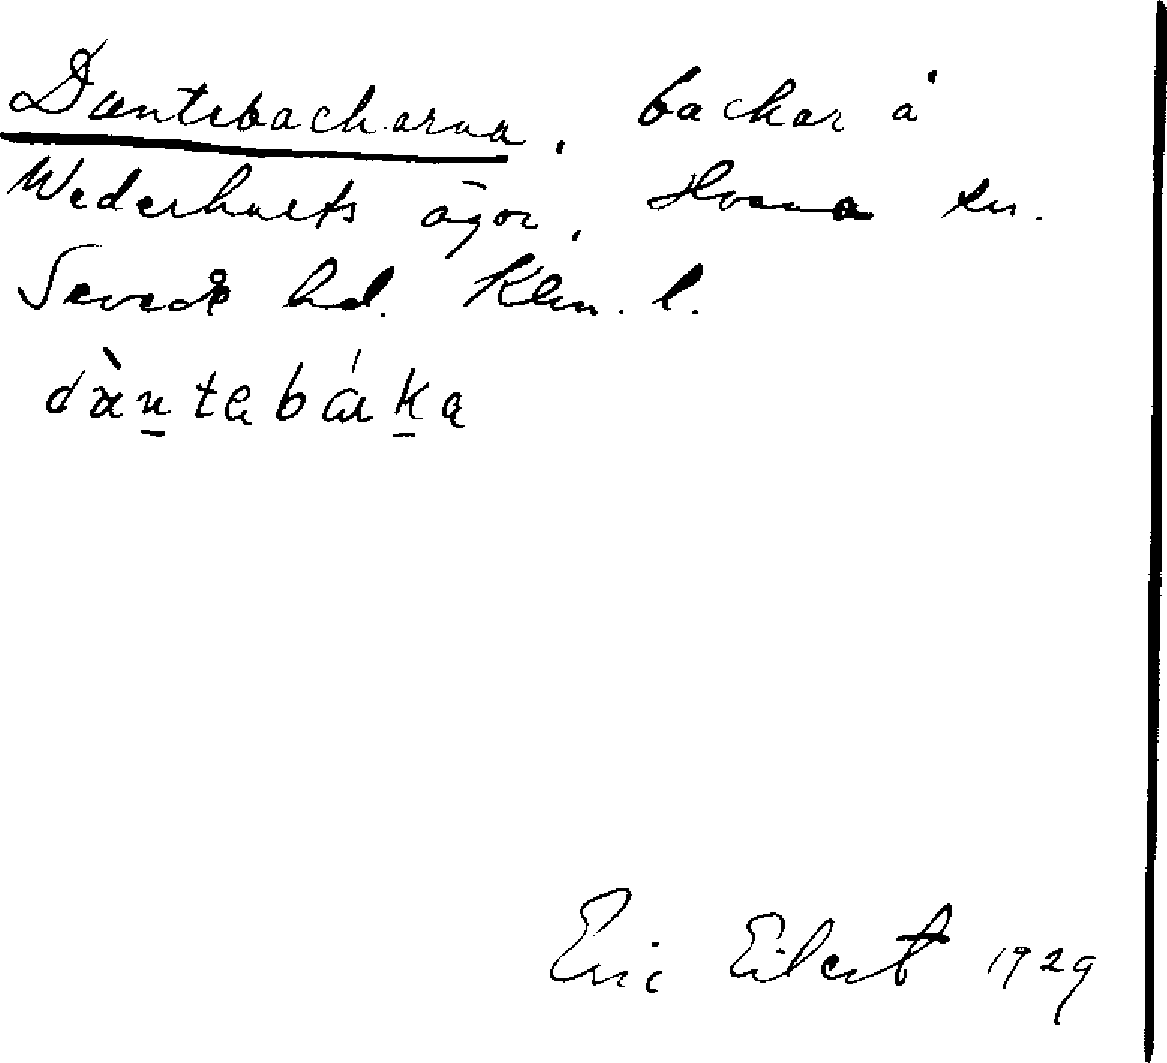 Dantebackarna, backar å
Wederhults ägor, sn.
Sevede hd. Klm. l.
dàntabáka
Eric Eilert 1929